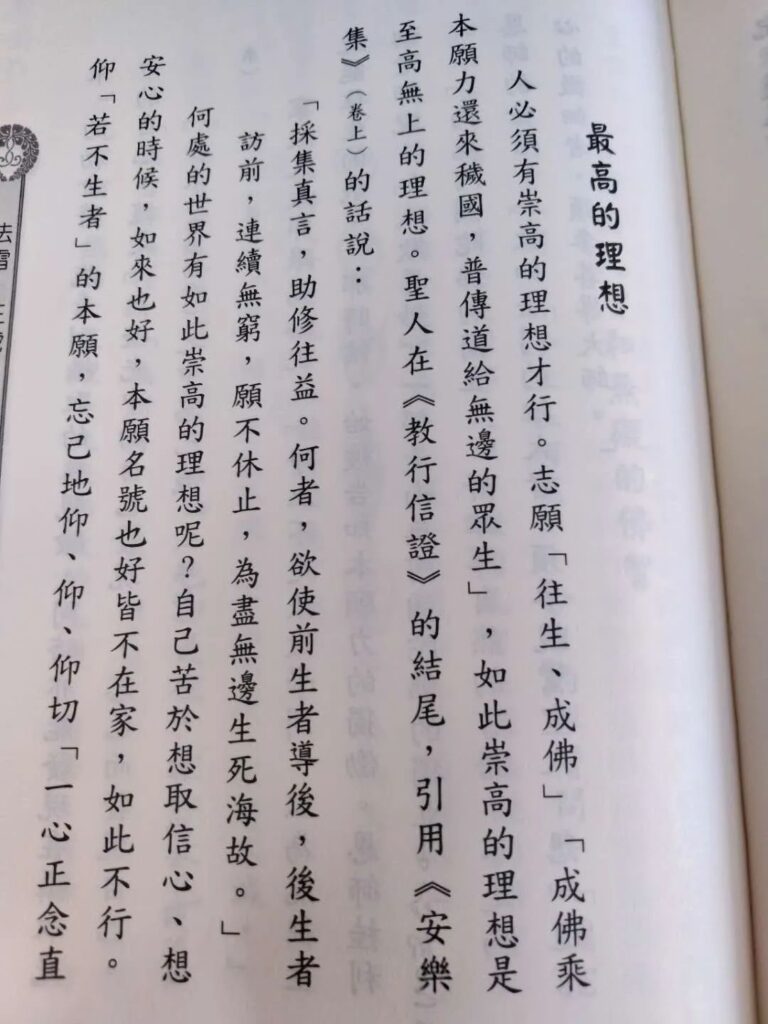 最高的理想
人必須有崇高的理想才行。志願「往生、成佛」「成佛乘
本願力還來穢國，普傳道給無邊的眾生」，如此崇高的理想是
至高無上的理想。聖人在《教行信證》的結尾，引用《安樂
集》（卷上）的話說：
「採集真言，助修往益。何者，欲使前生者導後，後生者
訪前，連續無窮，願不休止，為盡無邊生死海故。」
何處的世界有如此崇高的理想呢？自己苦於想取信心、想
安心的時候，如來也好，本願名號也好皆不在家，如此不行。
仰「若不生者」的本願，忘己地仰、仰、仰切「一心正念直